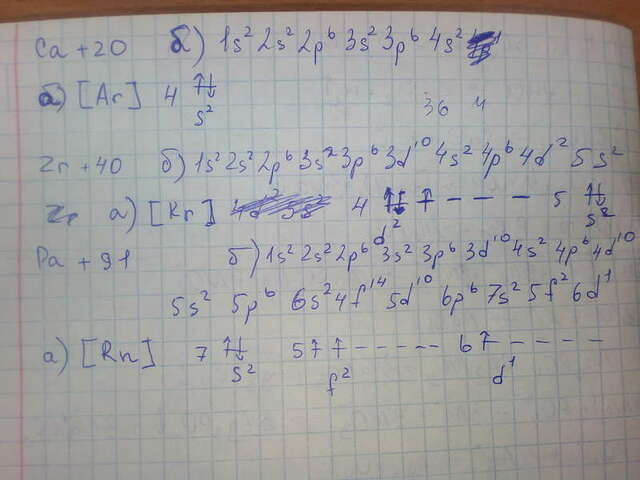 Ca +20 б) 1s² 2s² 2p⁶ 3s² 3p⁶ 4s²
а) [Ar] 4 ↑↓
s²
36 4
Zr +40 б) 1s² 2s² 2p⁶ 3s² 3p⁶ 3d¹⁰ 4s² 4p⁶ 4d² 5s²
Zr а) [Kr] 4 ↑↓ ↑ – – – 5 ↑↓
d² s²
Pa +91 б) 1s² 2s² 2p⁶ 3s² 3p⁶ 3d¹⁰ 4s² 4p⁶ 4d¹⁰
5s² 5p⁶ 6s² 4f¹⁴ 5d¹⁰ 6p⁶ 7s² 5f² 6d¹
а) [Rn] 7 ↑↓ 5 ↑ ↑ – – – – – 6 ↑ – – – –
s² f² d¹